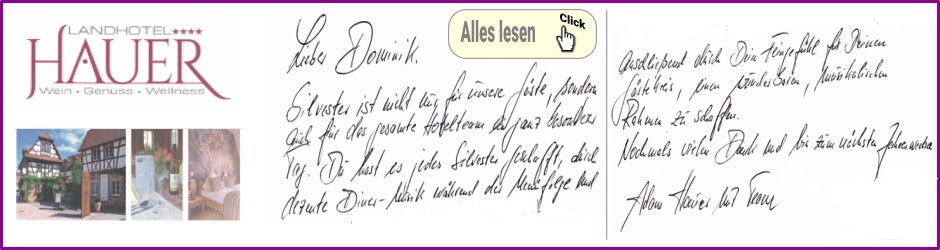 LANDHOTEL ****
HAUER
Wein · Genuss · Wellness
Lieber Dominik.
Silvester ist nicht nur für unsere Gäste, sondern
auch für das gesamte Hotelteam ein ganz besonderer
Tag. Du hast es jedes Silvester geschafft, durch
dezente Diner-Musik während der Menüfolge und
Alles lesen
Click
anschließend durch Dein Feingefühl für Deinen
Gästekreis, einen wunderbaren, musikalischen
Rahmen zu schaffen.
Nochmals vielen Dank und bis zum nächsten Jahreswechsel
Adam Hauer mit Team